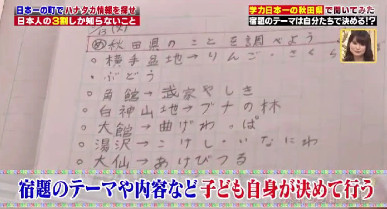 日本一の町でハナタカ情報を探せ
日本人の3割しか知らないこと
学力日本一の秋田県で聞いてみた
宿題のテーマは自分たちで決める!?
13(火)
め 秋田県のことを調べよう
○横手盆地→りんご・さくら
○ぶどう
○角館→武家やしき
○白神山地→ブナの林
○大館→曲げわっぱ
○湯沢→こけし・いなにわ
○大仙→あけびつる
宿題のテーマや内容など子ども自身が決めて行う